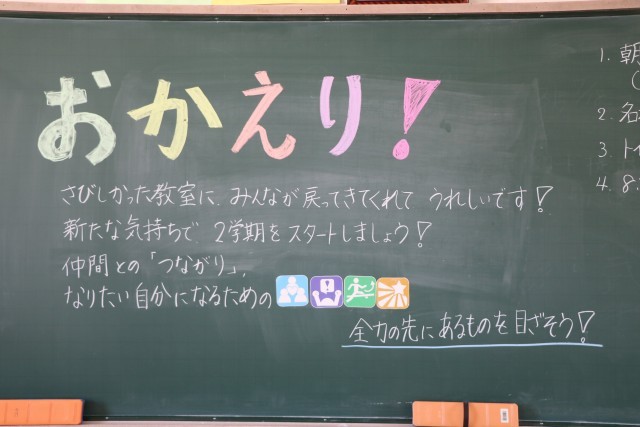 おかえり!
さびしかった教室に、みんなが戻ってきてくれて うれしいです!
新たな気持ちで、2学期をスタートしましょう!
仲間との「つながり」、
なりたい自分になるための
全力の先にあるものを目ざそう!
1. 朝
(
2. 名
3. トイ
4. 8